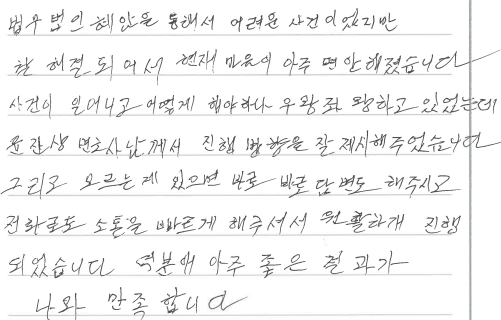 법무법인 혜안을 통해서 어려운 사건이었지만
잘 해결되어서 현재 마음이 아주 편안해졌습니다
사건이 일어나고 어떻게 해야하나 우왕좌왕하고 있었는데
변호사님께서 진행 방향을 잘 제시해주었습니다
그리고 모르는게 있으면 바로 바로 답변도 해주시고
전화로도 소통을 빠르게 해주셔서 원활하게 진행
되었습니다 덕분에 아주 좋은 결과가
나와 만족합니다